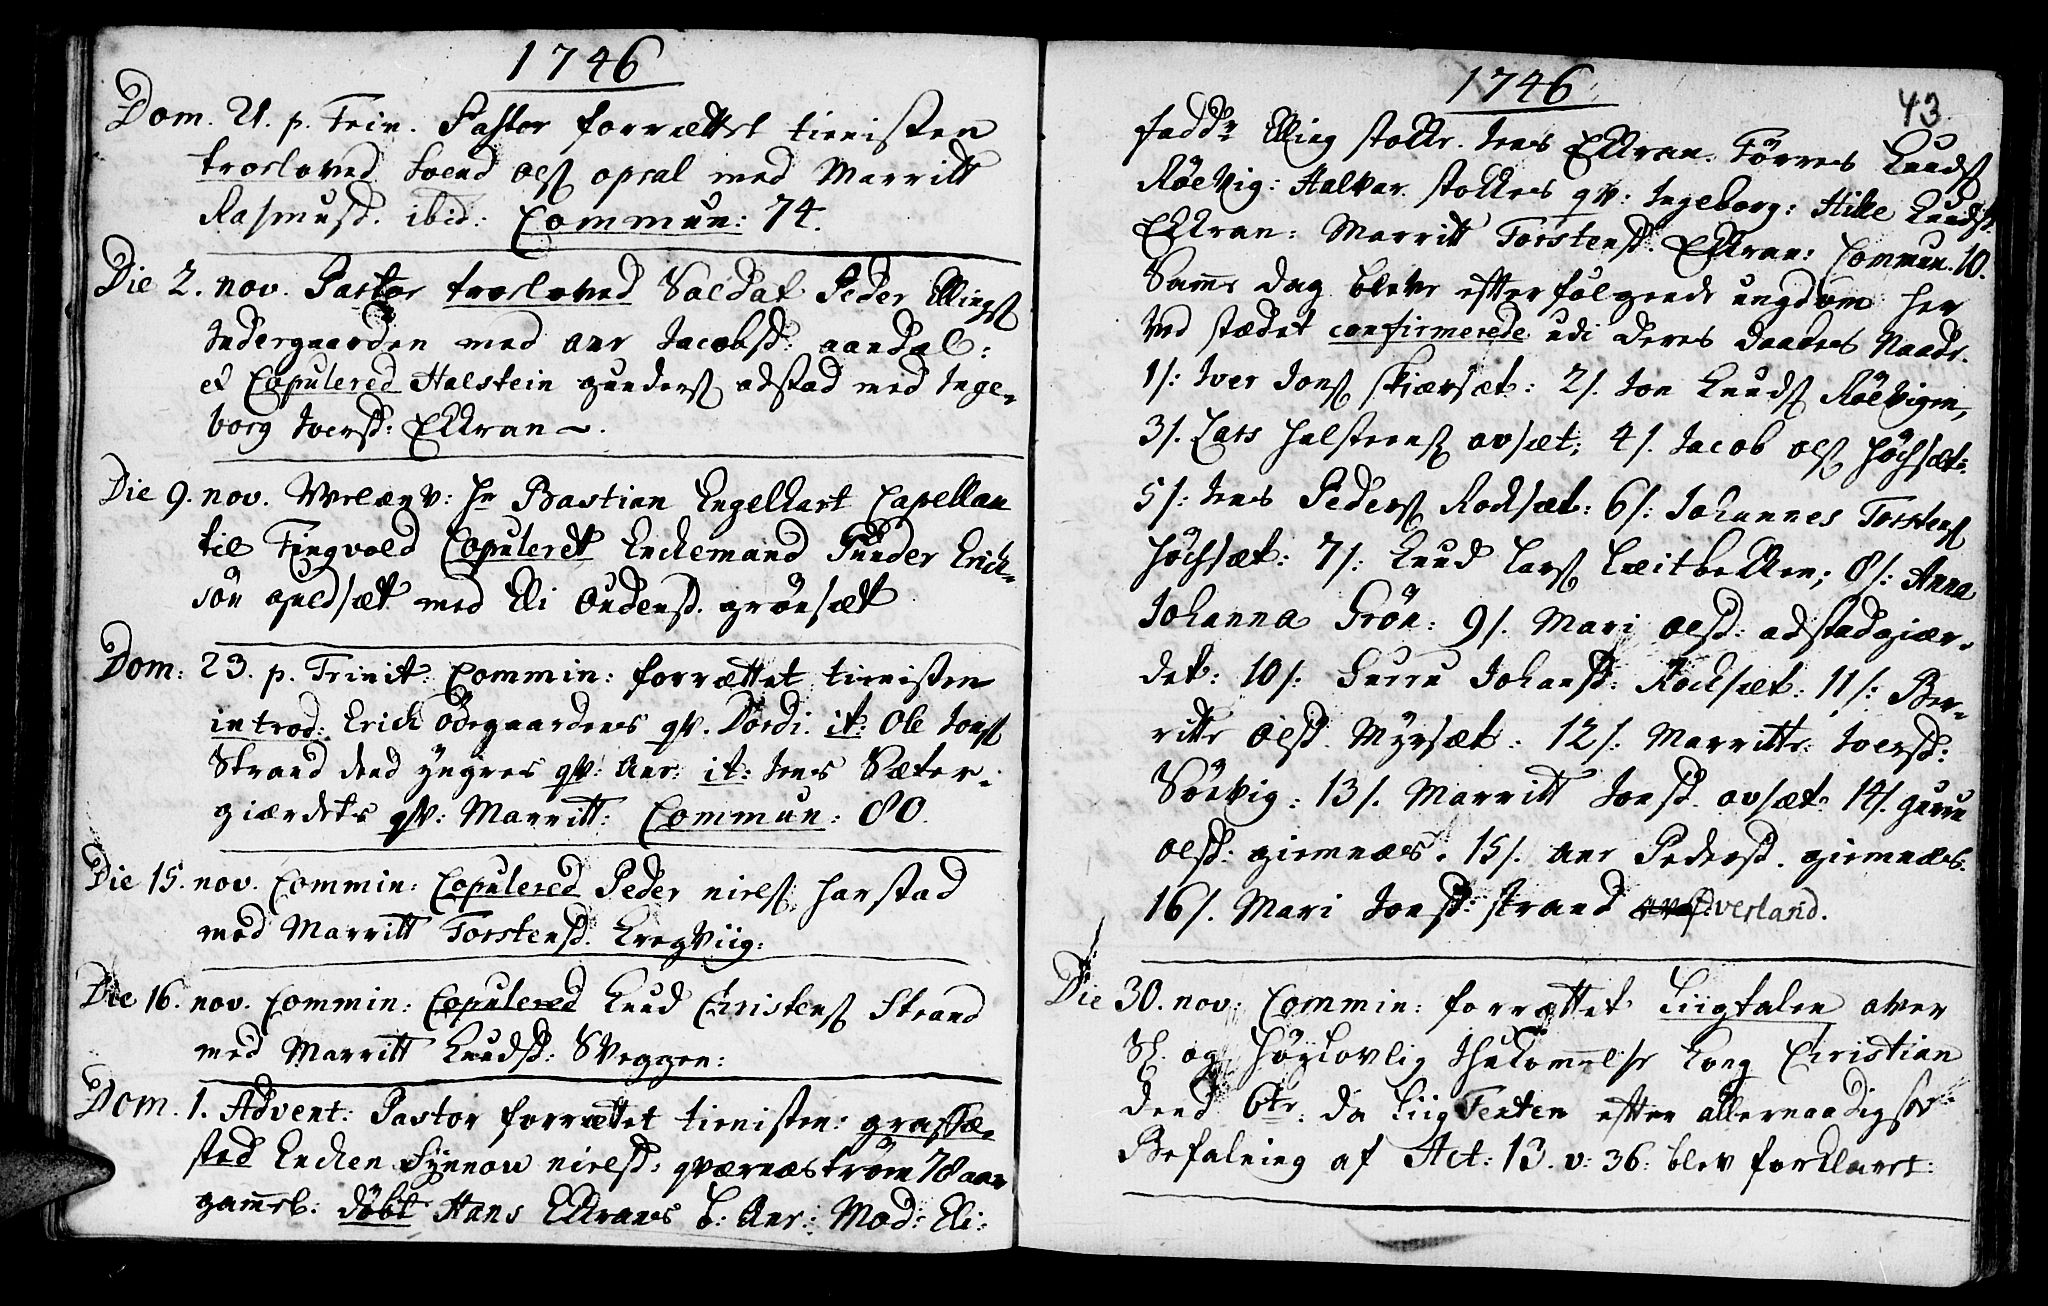 1746
Dom. 21. p. Trin. Pastor forrættet tienisten
troloved Svend Ols opsal med Marritt
Rasmusd. ibid: Commun: 74.
Die 2. nov. Pastor troloved Soldat Peder Ellings
Indergaarden med Ane Jacobsd: aandal:
et Copulered Halstein gunders odstad med Inge-
borg Iversd: Ekran.
Die 9. nov. Velærv: Hr Bastian Engelhart Capellan
til Tingvold Copuleret Enckemand Gunder Erich-
sön guldsæt med Eli Oudensd. grönsæt
Dom: 23. p. Trinit: Commin: forrættet tienisten
introd: Erich Ödegaardens qv. Dordi. it: Ole Jons
Strand dend yngres qv: Ane: it: Jens Sæter-
giærdets qv: Marritt: Commun: 80.
Die 15. nov. Commin: Copulered Peder niels harstad
med Marritt Torstensd. Kregviig:
Die 16. nov. Commin: Copulered Knud Christens Strand
med Marritt Knudsd: Sveggen:
Dom. 1. Advent: Pastor forrættet tienisten: graffæ-
sted Encken Synnov nielsd. qværnestrøm 78 aar
gamel: döbt Hans Ekrans b: Ane: Mod: Eli:
1746
43
faddr Elling stokke. Jens Ekran. Törres Knuds
Röevig: Halvar stokkes qv: Ingeborg: Hille Knudsd.
Ekran: Marritt Torstensd. Ekran: Commun. 10.
Samme dag bleve efterfølgende ungdom her
ved stædet confirmerede udi deres daabes Naade.
1/: Iver Jons skiærsæt: 2/. Jon Knuds Röevigen,
3/. Lars halsteens ovsæt; 4/. Jacob Ols höchsæt:
5/: Jens Peders Rodsæt: 6/: Johannes Torstens
höchsæt: 7/: Knud Lars Leitbekken; 8/: Anna
Johanna Grön: 9/. Mari Olsd: odstadgiær-
det: 10/: Gurru Johansd: Röchsæt: 11/: Ber-
ritte Olsd. Myrsæt: 12/: Marritte: Iversd:
Sörvig: 13/. Marritt Jonsd. ovsæt: 14/. gurru
Olsd: giemnæs. 15/. Ane Pedersd. giemnæs.
16/. Mari Jonsd: strand averland.
Die 30. nov: Commin: forrættet Liigtalen over
Sl. og Höylovlig Ihukommelse Kong Christian
dend 6te: da Liig Texten efter allernaadigste
Befalning af Act: 13. v: 36: blev forklaret: